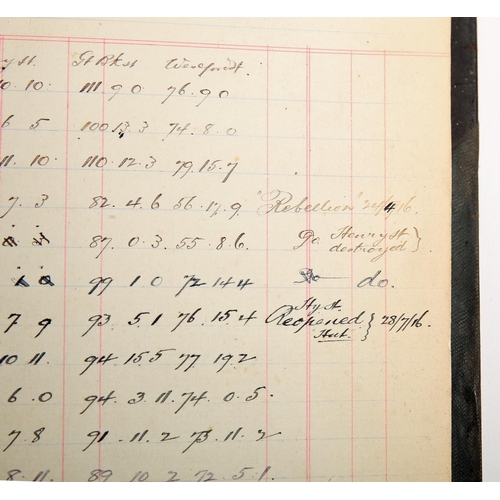 y st. Gt Bk st Wexford st.
10. 10. 111 9 0 76. 9 0
6 5 100 13. 3 74. 8. 0
11. 10. 110. 12. 3 79. 15. 7
7. 3 82. 4. 6 56. 17. 9. "Rebellion" 24/4/16.
87. 0. 3. 55. 8. 6. Po Henry st }
destroyed
99 1 0 72 14 4 do.
Hy st.
7 9 93. 5. 1 76. 15. 4 Reopened } 28/7/16.
Hut.
10 11. 94. 15. 5 77. 19. 2
6. 0 94. 3. 11. 74. 0. 5.
7. 8 91. 11. 2 73. 11. 2
8. 11. 89 10 2 72. 5. 1.